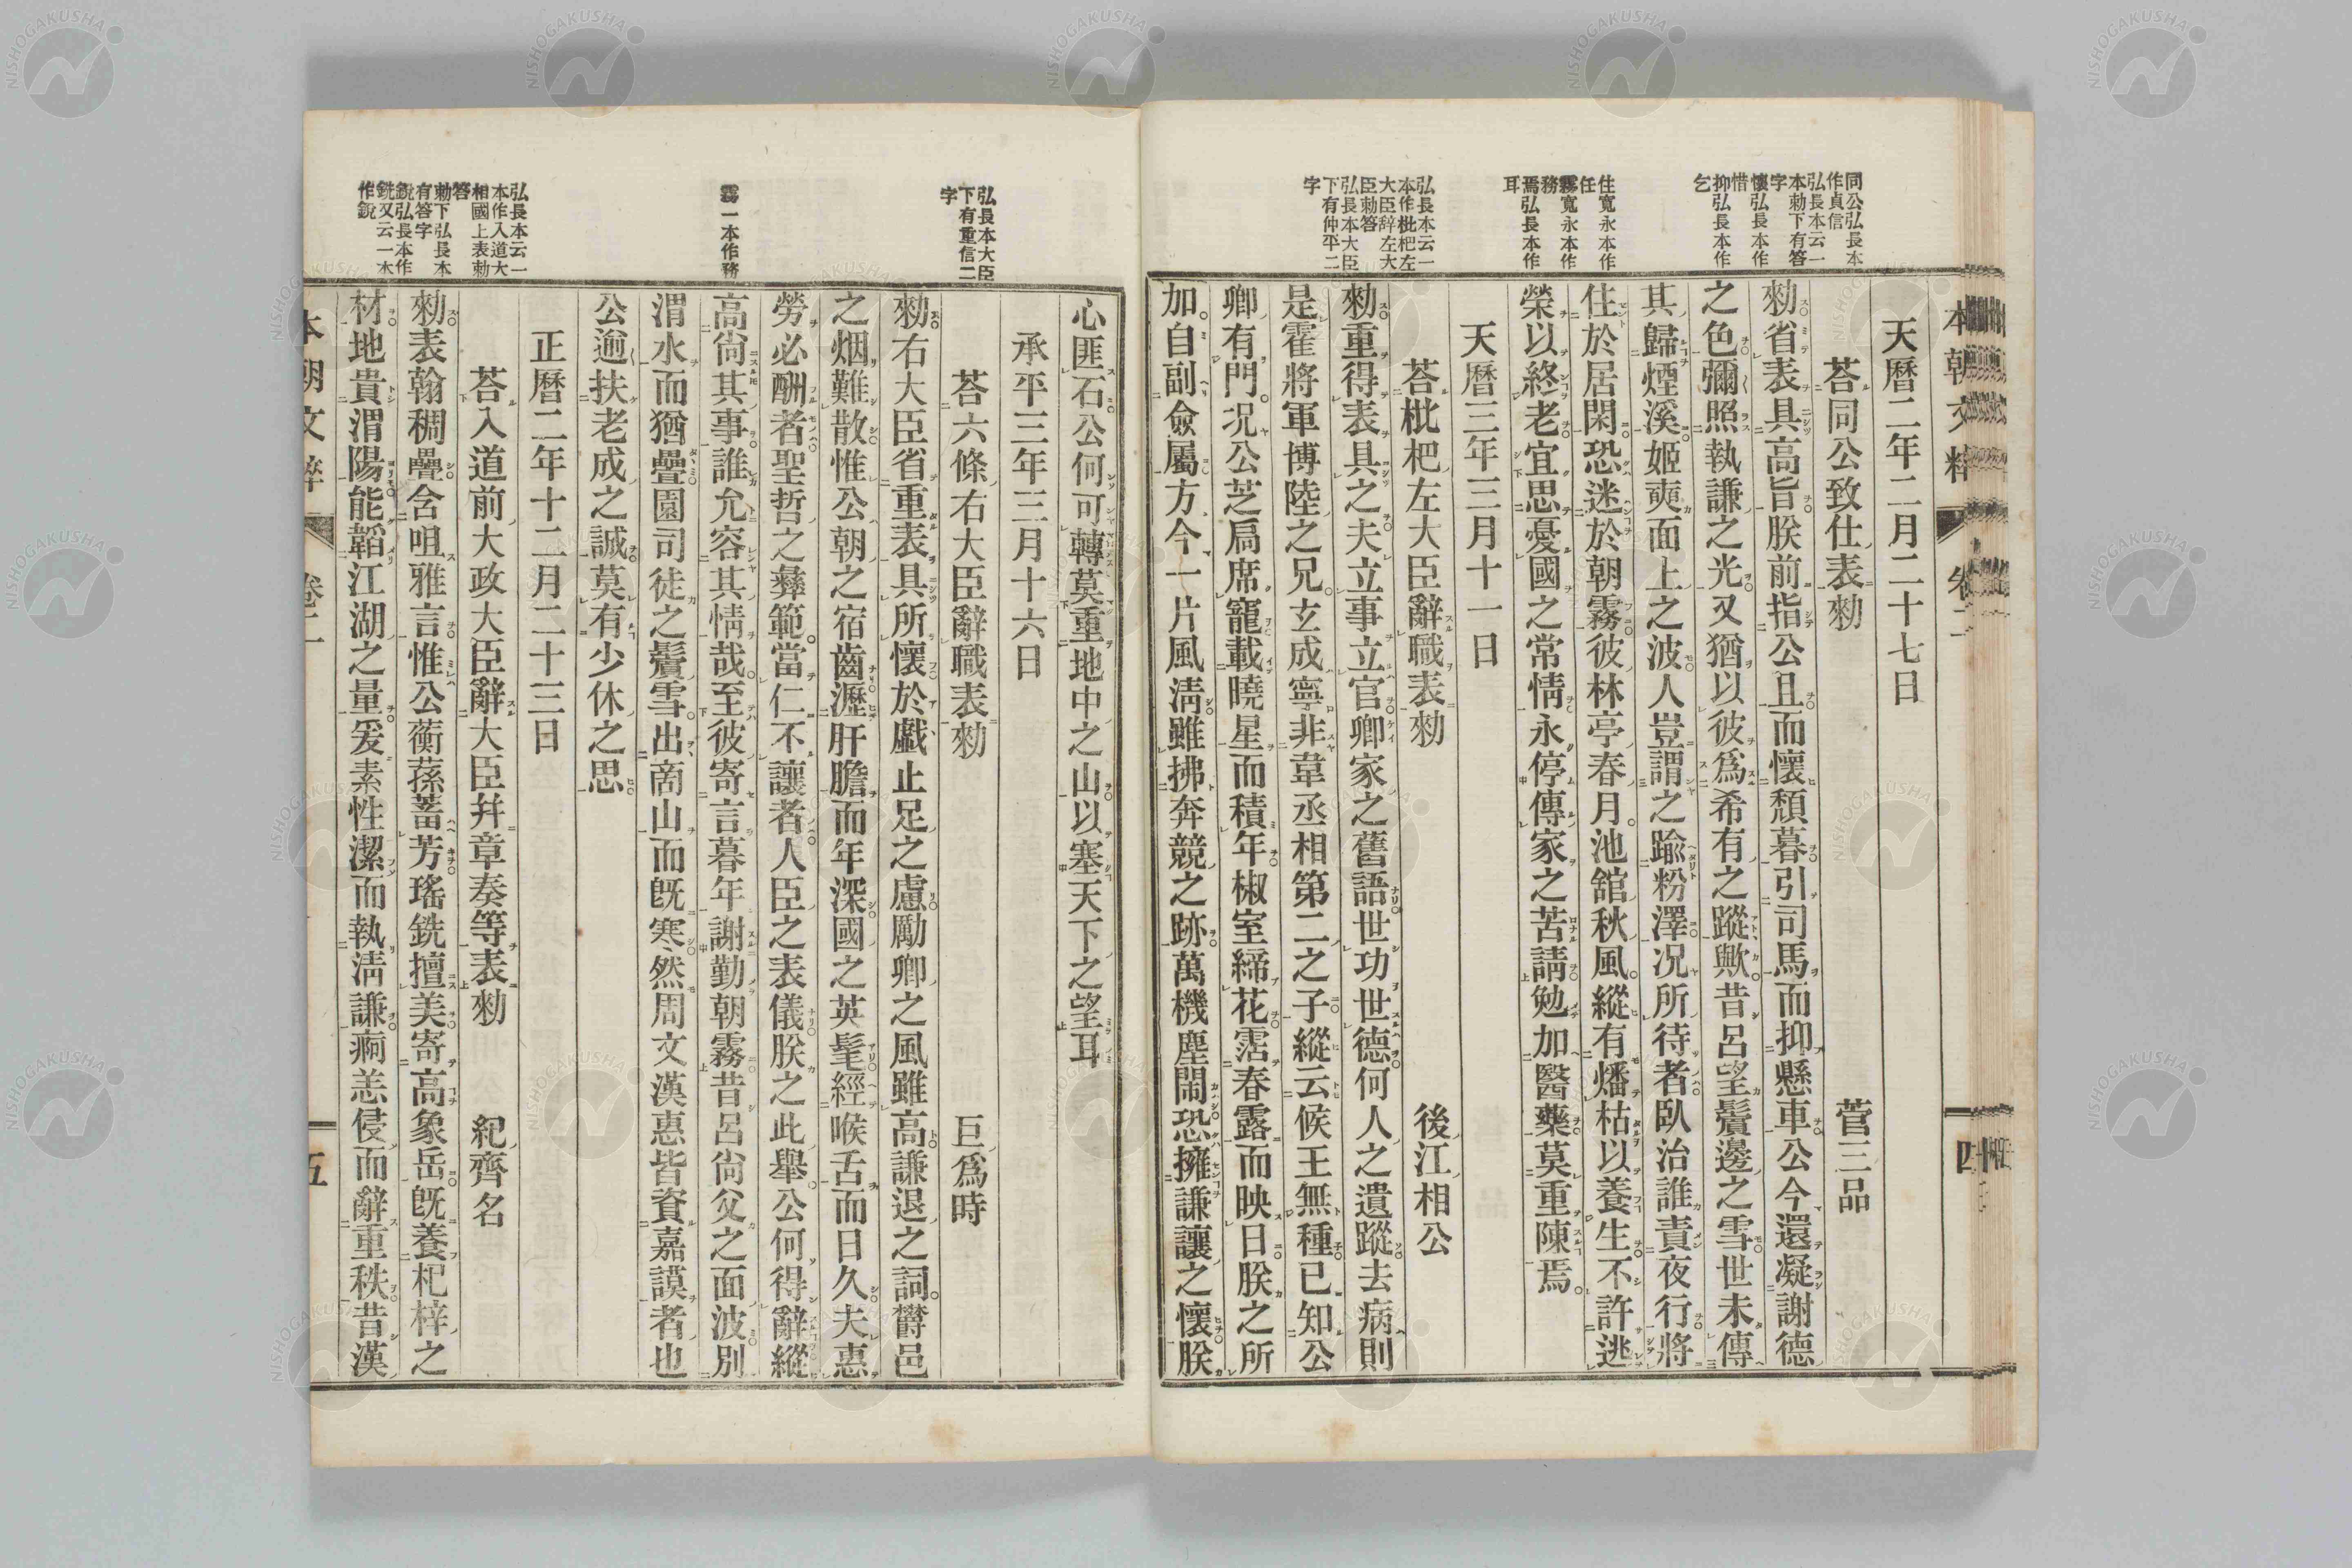 同公弘長本
作貞信
弘長本云一
本勅下有答
字
懷弘長本作
惜
抑弘長本作
乞
住寬永本作
任
霧寬永本作
務
焉弘長本作
耳
弘長本云一
本作枇杷左
大臣辞左大
臣勅答
弘長本大臣
下有仲平二
字
本朝文粹 卷二 四
天曆二年二月二十七日
荅同公致仕表勑 菅三品
勑省表具高旨朕前指公且而懷頽暮引司馬而抑懸車公今還凝謝德
之色彌照執謙之光又猶以彼爲希有之蹤歟昔呂望鬢邊之雪世未傳
其歸煙溪姬奭面上之波人豈謂之踰粉澤况所待者臥治誰責夜行將
住於居閑恐迷於朝霧彼林亭春月池舘秋風縱有燔枯以養生不許逃
榮以終老宜思憂國之常情永停傳家之苦請勉加醫藥莫重陳焉
天曆三年三月十一日
荅枇杷左大臣辭職表勑 後江相公
勑重得表具之夫立事立官卿家之舊語世功世德何人之遺蹤去病則
是霍將軍博陸之兄玄成寧非韋丞相第二之子縱云候王無種已知公
卿有門况公芝扃席寵載曉星而積年椒室締花霑春露而映日朕之所
加自副僉屬方今一片風淸雖拂奔競之跡萬機塵閙恐擁謙讓之懷朕
弘長本大臣
下有重信二
字
霧一本作務
弘長本云一
本作入道大
相國上表勅
答
勅下弘長本
有答字
銳弘長本作
銑又云一本
作銳
心匪石公何可轉莫重地中之山以塞天下之望耳
承平三年三月十六日
荅六條右大臣辭職表勑 巨爲時
勑右大臣省重表具所懷於戲止足之慮勵卿之風雖高謙退之詞欝邑
之烟難散惟公朝之宿齒瀝肝膽而年深國之英髦經喉舌而日久夫惠
勞必酬者聖哲之彝範當仁不讓者人臣之表儀朕之此舉公何得辭縱
高尙其事誰允容其情哉至彼寄言暮年謝勤朝霧昔呂尙父之面波別
渭水而猶疊園司徒之鬢雪出啇山而旣寒然周文漢惠皆資嘉謨者也
公逈扶老成之誠莫有少休之思
正曆二年十二月二十三日
荅入道前大政大臣辭大臣幷章奏等表勑 紀齊名
勑表翰稠疊含咀雅言惟公蘅蓀蓄芳瑤銑擅美寄高象岳旣養杞梓之
材地貴渭陽能韜江湖之量爰素性潔而執淸謙痾恙侵而辭重秩昔漢
本朝文粹 卷二 五